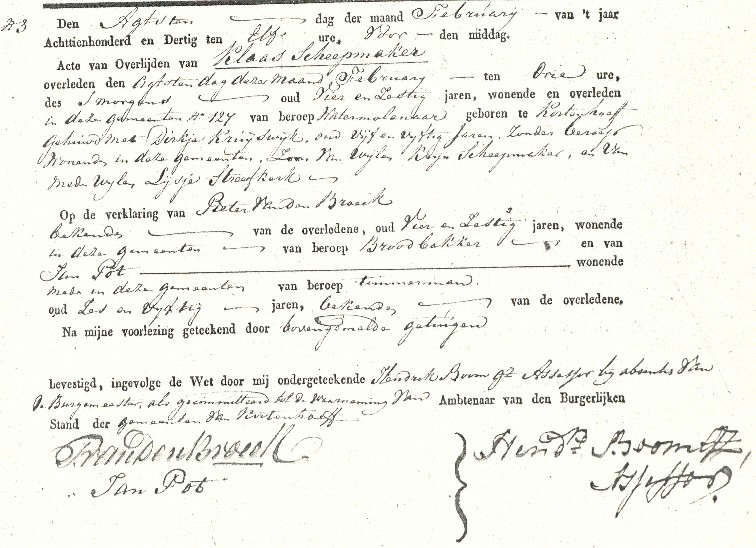 N 3 Den Agtsten dag der maand February van 't jaar
Achttienhonderd en Dertig ten Elf ure, Voor den middag.
Acte van Overlijden van Klaas Scheepmaker
overleden den Agtsten dag dezer Maand February ten Drie ure,
des Smorgens oud Vier en Zestig jaren, wonende en overleden
in deze gemeenten No 127 van beroep Watermolenaar geboren te Kortenhoeff
gehuwd met Dirkje Kruyswyk, oud Vijf en vyftig Jaren, Zonder beroep
Wonende in deze gemeenten, Zoon Van Wylen Kryn Scheepmaker, en Van
mede Wylen Lijsje Streefkerk
Op de verklaring van Pieter Van den Broeck
bekende van de overledene, oud Vier en Zestig jaren, wonende
in deze gemeenten van beroep Broodbakker en van
Jan Pot wonende
mede in deze gemeenten van beroep timmerman.
oud Zes en vyftig jaren, bekende van de overledene.
Na mijne voorlezing geteekend door bovengemelde getuigen
bevestigd, ingevolge de Wet door mij ondergeteekende Hendrik Boom Gz Assessor by absentie Van
de Burgemeester, als gecommitteerd tot de waarneming Van Ambtenaar van den Burgerlijken
Stand der gemeenten Van Kortenhoeff
P Van den Broeck Hendk Boom Gz
Jan Pot Assessor